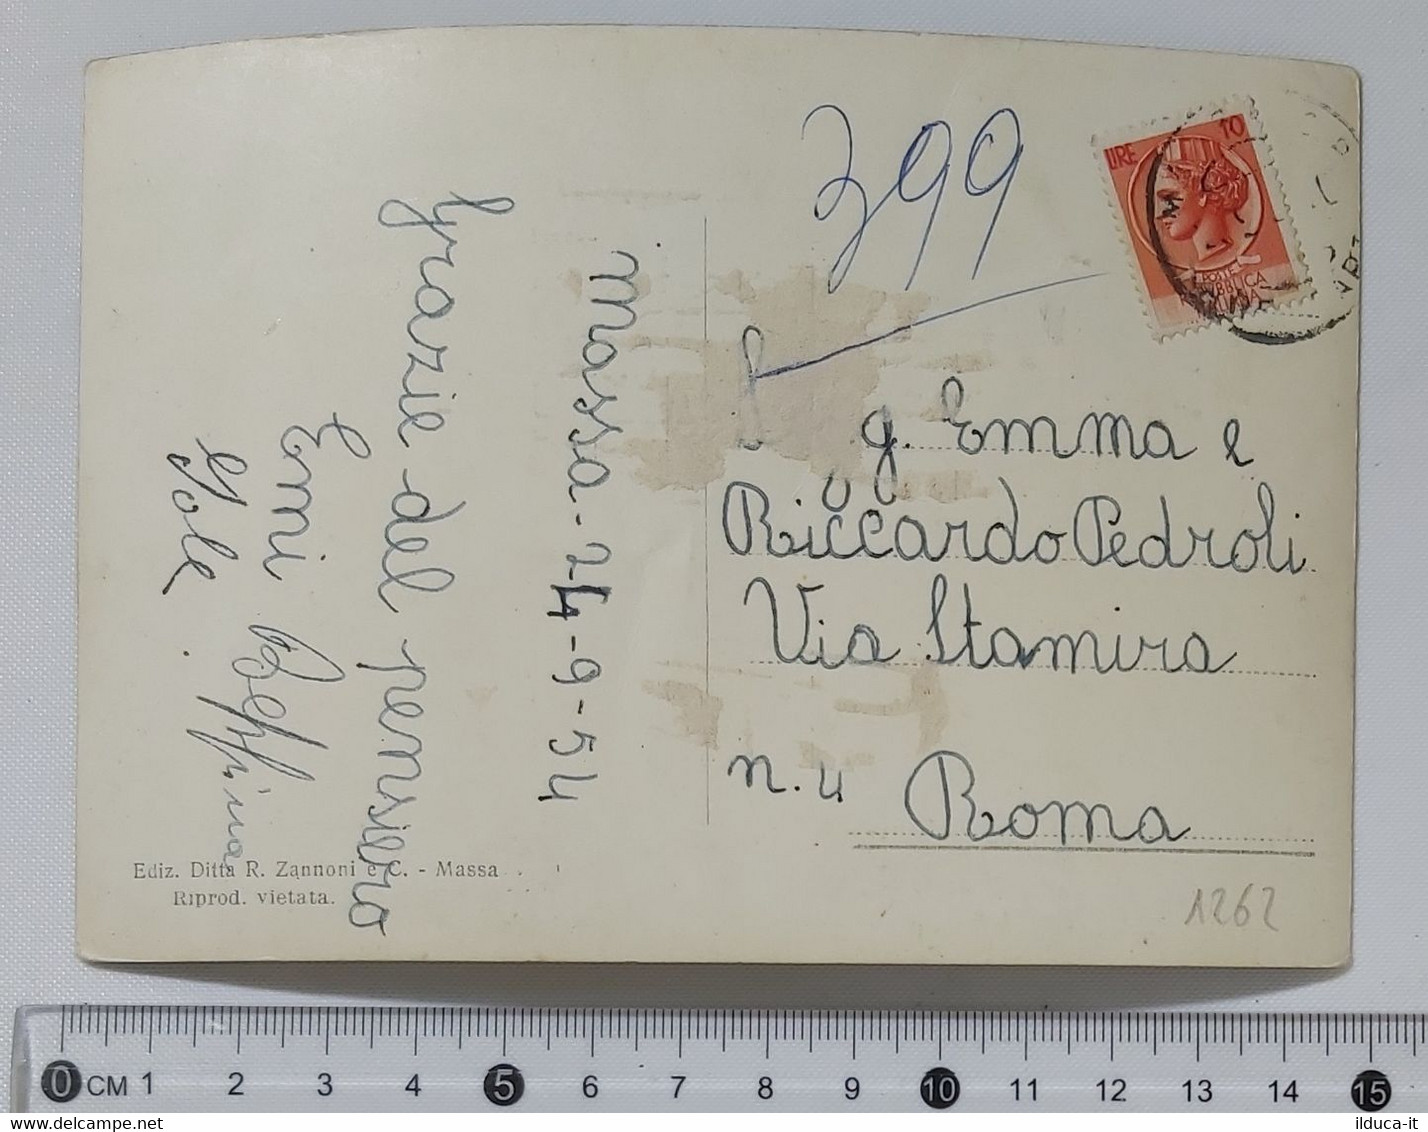 399
LIRE 10
POSTE
REPUBBLICA
ITALIANA
Massa - 24-9-54
Grazie del pensiero
Emi Beppina
Iole.
g. Emma e
Riccardo Pedroli
Via Stamira
n. 4 Roma
Ediz. Ditta R. Zannoni e C. - Massa
Riprod. vietata.
1262
0 CM 1 2 3 4 5 6 7 8 9 10 11 12 13 14 15
delcampe.net
ilduca-it